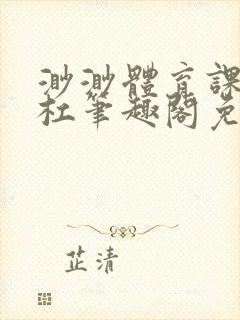 渺渺體育課
杜筆趣閣免
芷清